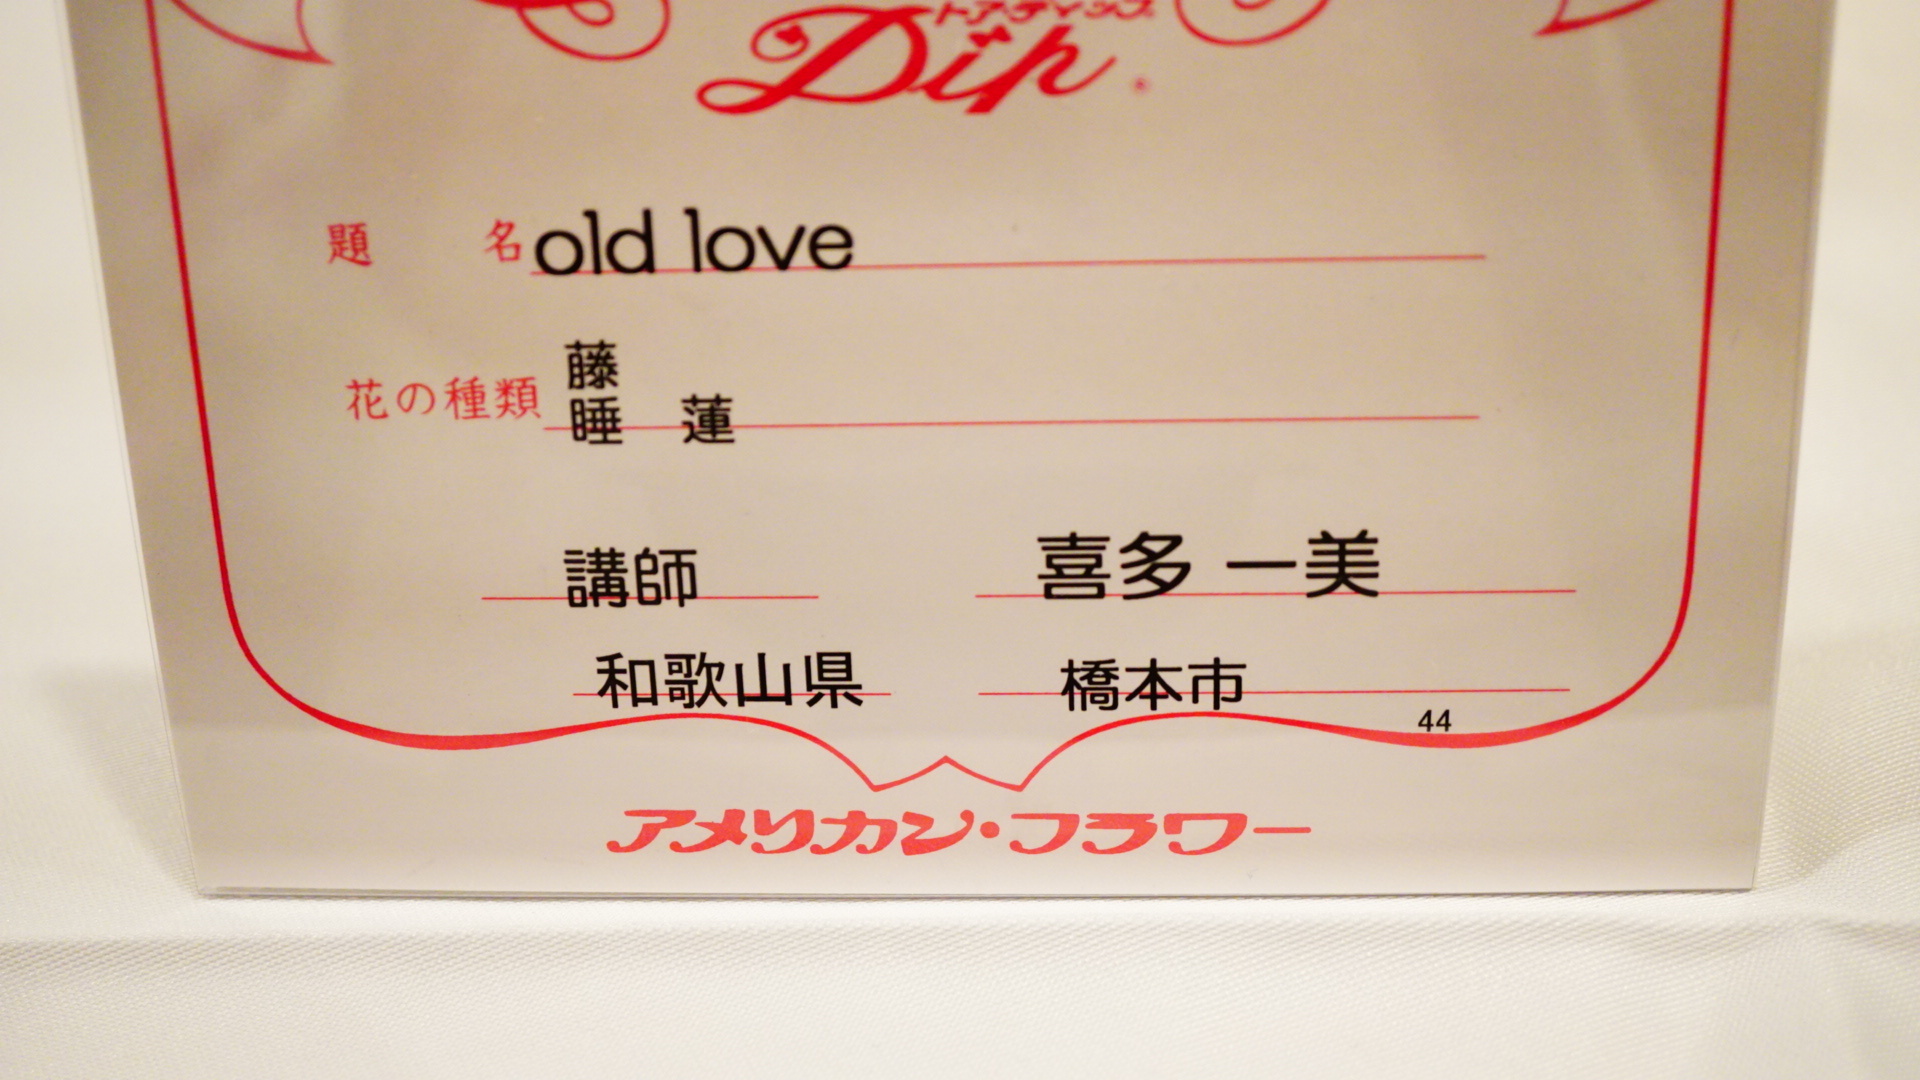 Dip
題　名 old love
藤
花の種類 睡　蓮
講師　喜多 一美
和歌山県　橋本市
44
アメリカン・フラワー